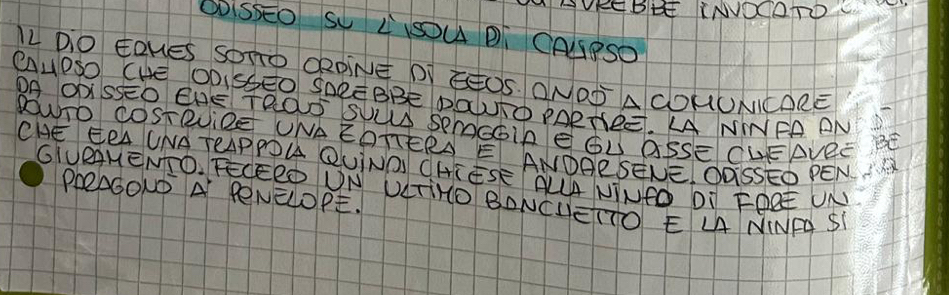 AVREBBE INVOCATO
ODISSEO SU L'ISOLA DI CALIPSO
IL DIO ERMES SOTTO ORDINE DI ZEUS. ANDÒ A COMUNICARE A
CALIPSO CHE ODISSEO SAREBBE DOVUTO PARTIRE. LA NINFA ANDÒ
DA ODISSEO CHE TROVÒ SULLA SPIAGGIA E GLI DISSE CHE AVREBBE
DOVUTO COSTRUIRE UNA ZATTERA E ANDARSENE. ODISSEO PENSAVA
CHE ERA UNA TRAPPOLA QUINDI CHIESE ALLA NINFA DI FARE UN
GIURAMENTO. FECERO UN ULTIMO BANCHETTO E LA NINFA SI
PARAGONÒ A PENELOPE.